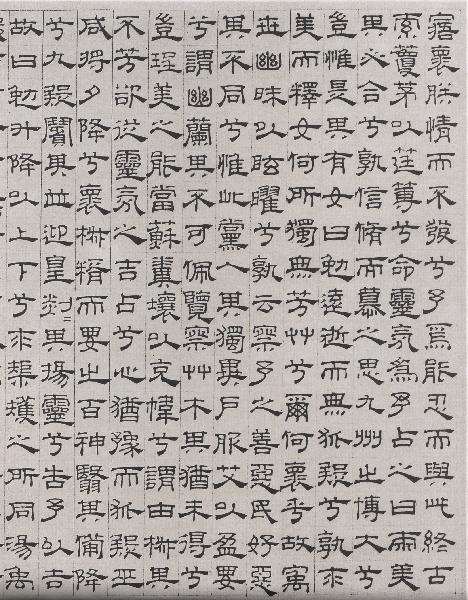 寤褱朕情而不發兮予焉能忍而與此終古
索藑茅以筳篿兮命靈氛為予占之曰兩美
其必合兮孰信脩而慕之思九州之博大兮
豈惟是其有女曰勉遠逝而無狐疑兮孰求
美而釋女何所獨無芳艸兮爾何褱乎故㝢
世幽昧以眩曜兮孰云察予之善惡民好惡
其不同兮惟此黨人其獨異戶服艾以盈要
兮謂幽蘭其不可佩覽察艸木其猶未得兮
豈珵美之能當蘇糞壤以充幃兮謂申椒其
不芳欲從靈氛之吉占兮心猶豫而狐疑巫
咸將夕降兮褱椒糈而要之百神翳其備降
兮九疑繽其並迎皇剡〻其揚靈兮告予以吉
故曰勉升降以上下兮求榘矱之所同湯禹